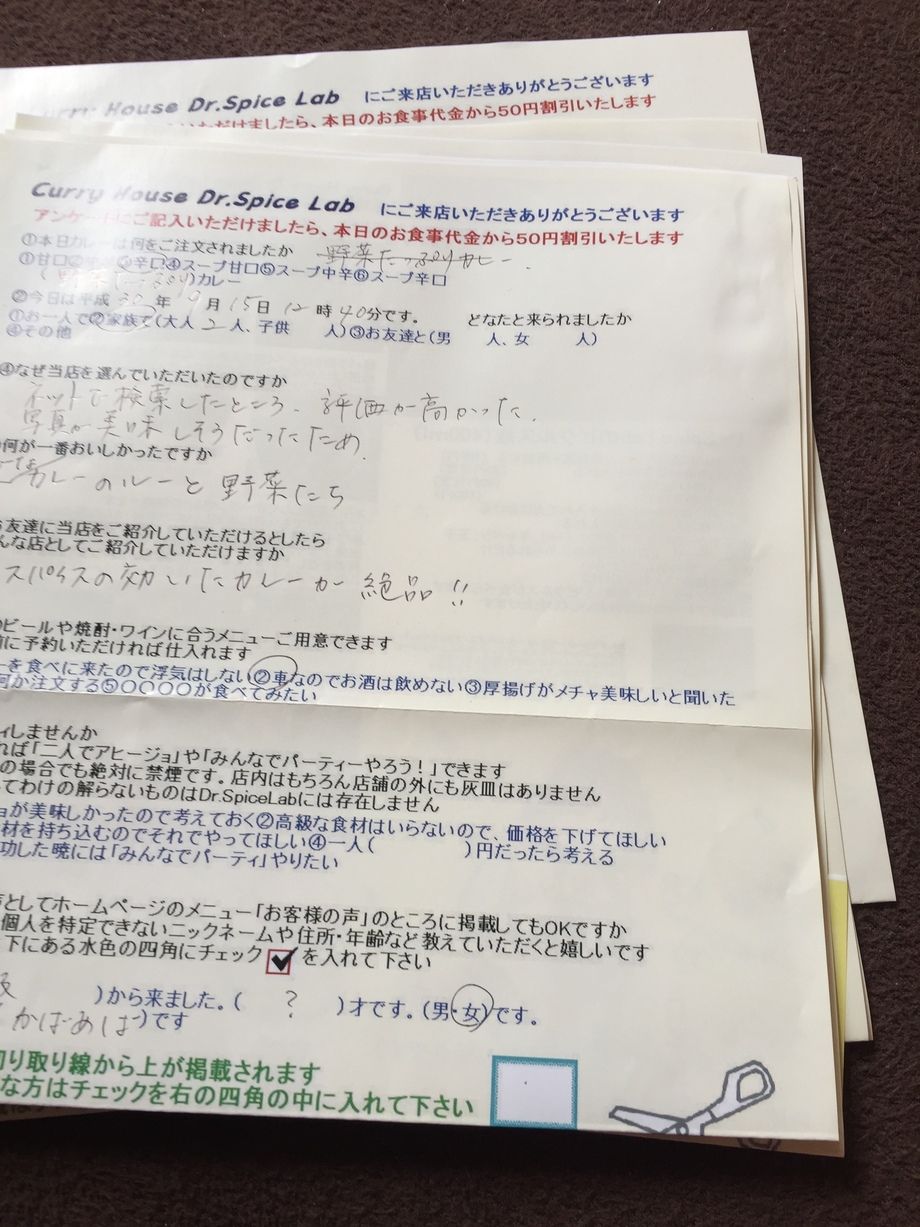 Curry House Dr.Spice Lab にご来店いただきありがとうございます
いただけましたら、本日のお食事代金から50円割引いたします
Curry House Dr.Spice Lab にご来店いただきありがとうございます
アンケートにご記入いただけましたら、本日のお食事代金から50円割引いたします
①本日カレーは何をご注文されましたか 野菜たっぷりカレー.
①甘口②中辛③辛口④スープ甘口⑤スープ中辛⑥スープ辛口
(野菜たっぷり)カレー
②今日は平成30年9月15日12時40分です。 どなたと来られましたか
①お一人で②家族で(大人2人、子供 人)③お友達と(男 人、女 人)
④その他
④なぜ当店を選んでいただいたのですか
ネットで検索したところ、評価が高かった.
写真が美味しそうだったため.
何が一番おいしかったですか
カレーのルーと野菜たち
お友達に当店をご紹介していただけるとしたら
んな店としてご紹介していただけますか
スパイスの効いたカレーが絶品!!
ビールや焼酎・ワインに合うメニューご用意できます
前に予約いただければ仕入れます
ーを食べに来たので浮気はしない②車なのでお酒は飲めない③厚揚げがメチャ美味しいと聞いた
何か注文する⑤〇〇〇〇が食べてみたい
ィしませんか
れば「二人でアヒージョ」や「みんなでパーティーやろう!」できます
の場合でも絶対に禁煙です。店内はもちろん店舗の外にも灰皿はありません
ってわけの解らないものはDr.SpiceLabには存在しません
ョが美味しかったので考えておく②高級な食材はいらないので、価格を下げてほしい
材を持ち込むのでそれでやってほしい④一人( )円だったら考える
功した暁には「みんなでパーティ」やりたい
声としてホームページのメニュー「お客様の声」のところに掲載してもOKですか
個人を特定できないニックネームや住所・年齢など教えていただくと嬉しいです
下にある水色の四角にチェック を入れて下さい
)から来ました。( ? )才です。(男・女)です。
かばあば)です
切り取り線から上が掲載されます
な方はチェックを右の四角の中に入れて下さい